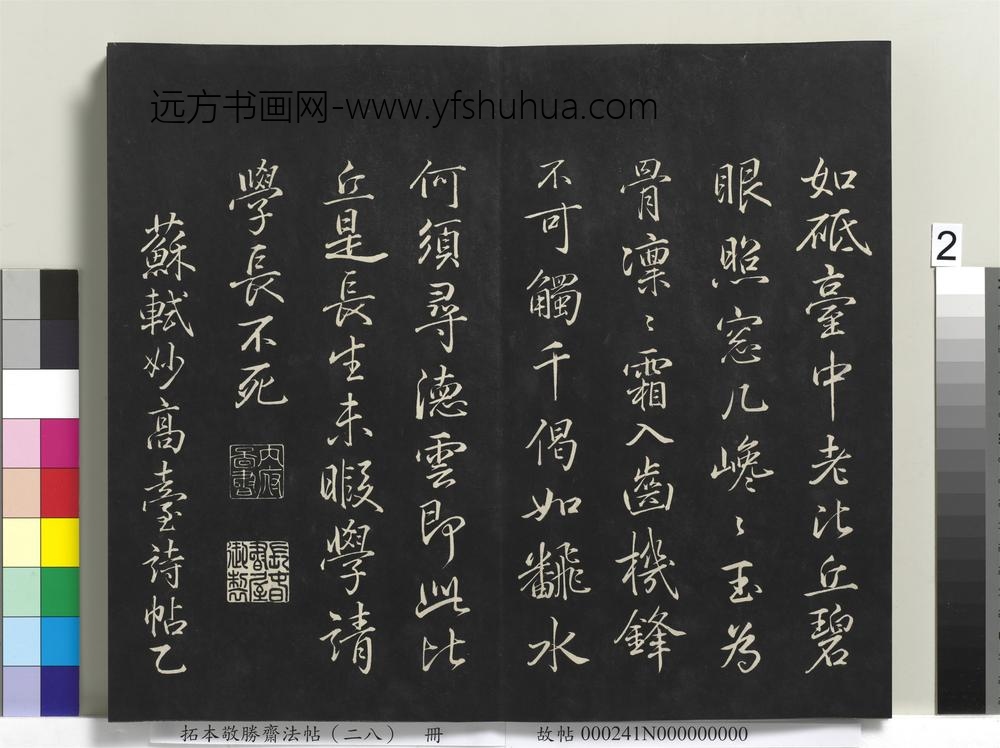 远方书画网-www.yfshuhua.com
2
如砥臺中老比丘碧
眼照窓几巉〻玉為
骨凜〻霜入齒機鋒
不可觸千偈如飜水
何須尋德雲即此比
丘是長生未暇學請
學長不死
内府
圖書
蘇軾妙高臺詩帖乙
拓本敬勝齋法帖（二八） 冊 故帖 000241N000000000